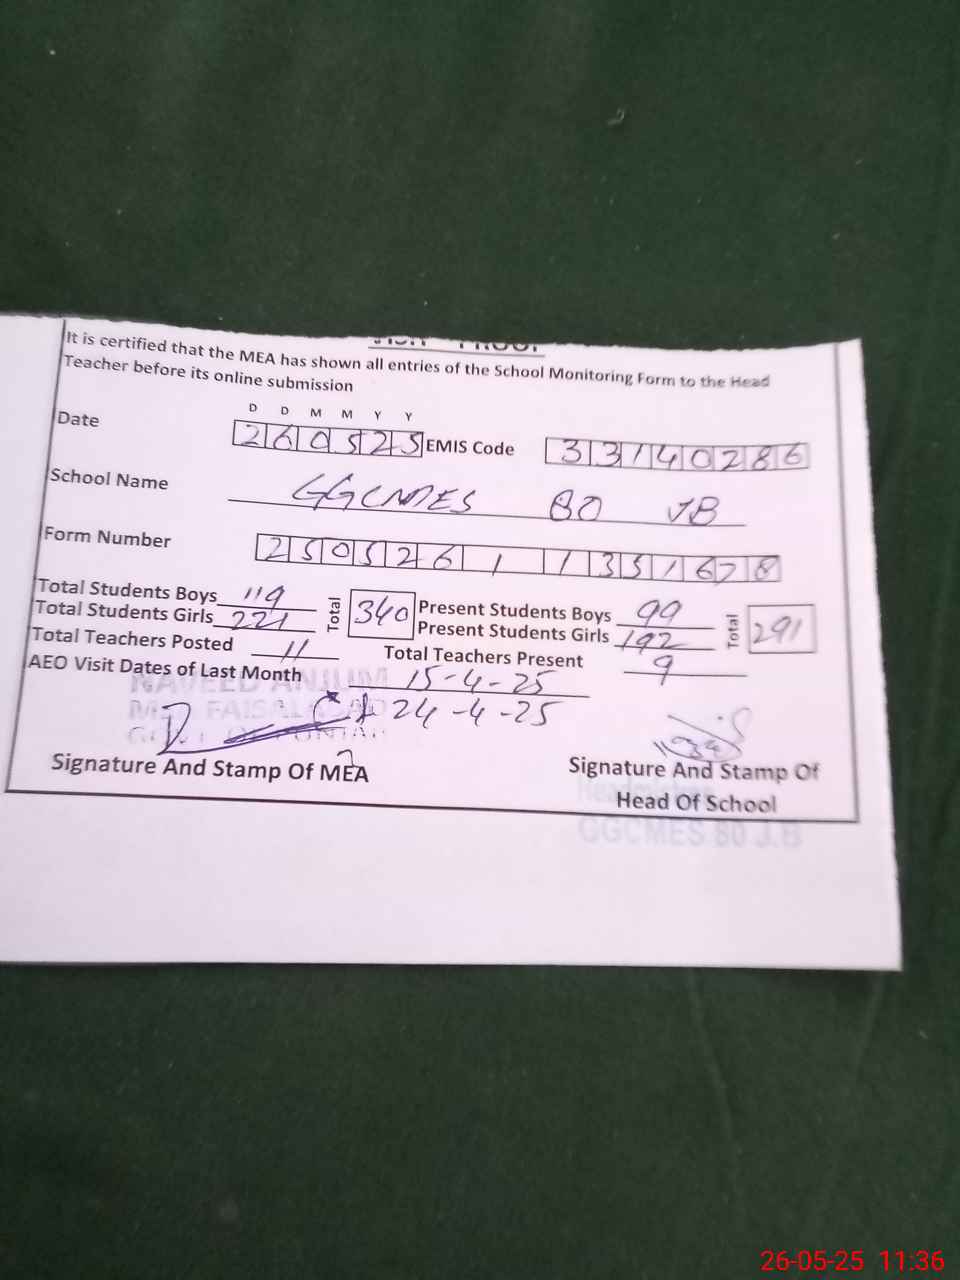 VISIT PROOF
It is certified that the MEA has shown all entries of the School Monitoring Form to the Head
Teacher before its online submission
D D M M Y Y
Date 260525 EMIS Code 33140286
School Name GGCMES 80 JB
Form Number 250526 1 1351678
Total Students Boys 119 Total 340 Present Students Boys 99 Total 291
Total Students Girls 221 Present Students Girls 192
Total Teachers Posted 11 Total Teachers Present 9
AEO Visit Dates of Last Month 15-4-25
NAVEED ANJUM
MEA FAISALABAD
& 24-4-25
GOVT OF PUNJAB
Signature And Stamp Of MEA
Signature And Stamp Of
Head Of School
Headmistress
GGCMES 80 J.B
26-05-25 11:36